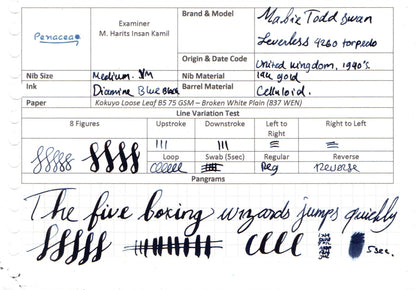 Penacea
Examiner
M. Harits Insan Kamil
Brand & Model
Mabie Todd Swan
Leverless 4260 torpedo
Origin & Date Code
United kingdom, 1940's.
Nib Size
Medium. M
Nib Material
14k gold
Ink
Diamine Blue Black
Barrel Material
Celluloid.
Paper
Kokuyo Loose Leaf B5 75 GSM – Broken White Plain (837 WEN)
Line Variation Test
8 Figures
Upstroke
Downstroke
Left to Right
Right to Left
Loop
Swab (5sec)
Regular
Reverse
Reg
Reverse
Pangrams
The five boxing wizards jumps quickly
5 sec.